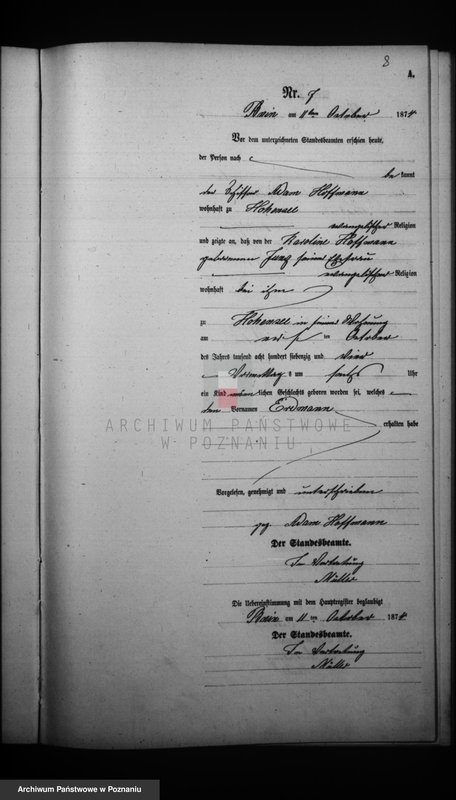 8
A.
Nr. 7
Bnin am 11ten October 1874
Vor dem unterzeichneten Standesbeamten erschien heute,
der Person nach
bekannt
der Schiffer Adam Hoffmann
wohnhaft zu Hohensee
evangelischer Religion
und zeigte an, daß von der Karoline Hoffmann
geborenen Junz seiner Ehefrau
evangelischer Religion
wohnhaft bei ihm
zu Hohensee in seiner Wohnung
am ten October
des Jahres tausend acht hundert siebenzig und vier
Vormittags um sechs Uhr
ein Kind männlichen Geschlechts geboren worden sei, welches
den Vornamen Erdmann
erhalten habe
ARCHIWUM PAŃSTWOWE
W POZNANIU
Vorgelesen, genehmigt und unterschrieben
gez Adam Hoffmann
Der Standesbeamte.
In Vertretung
Müller
Die Uebereinstimmung mit dem Hauptregister beglaubigt
Bnin am 11ten October 1874
Der Standesbeamte.
In Vertretung
Müller
Archiwum Państwowe w Poznaniu